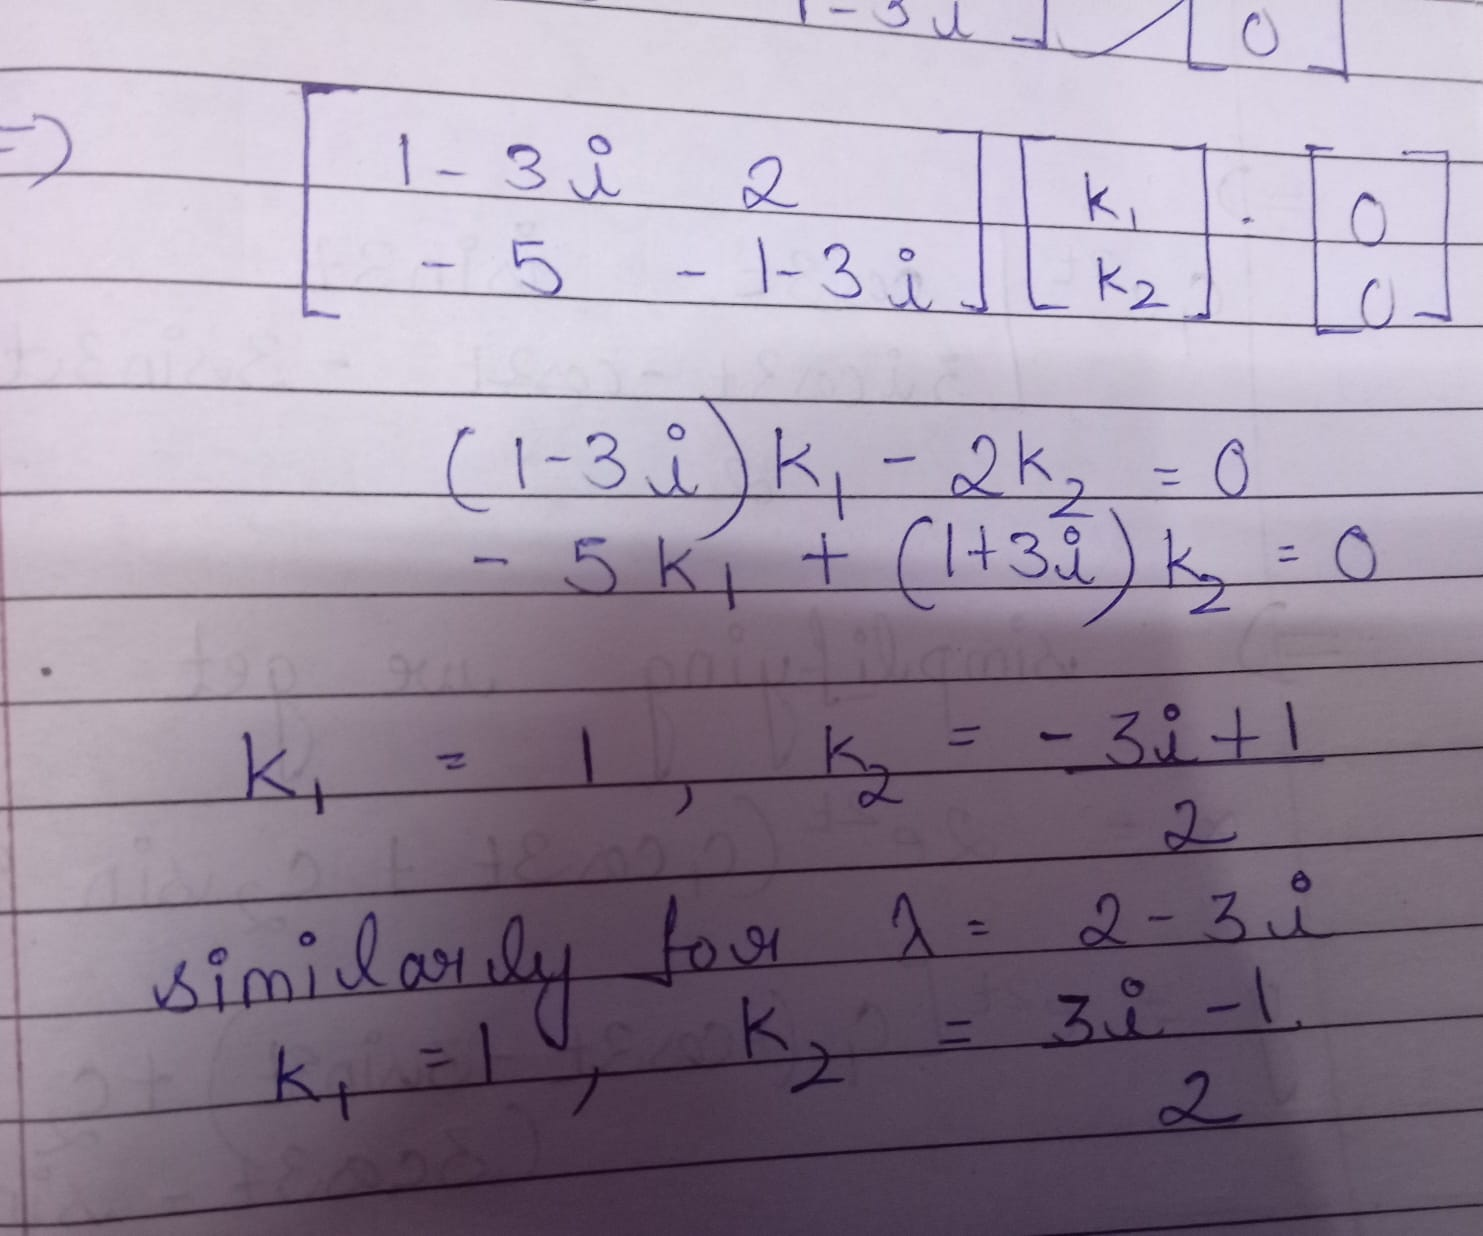 1-3i ] [ 0 ]
=> [ 1-3i 2 ] [ k₁ ] = [ 0 ]
[ -5 -1-3i ] [ k₂ ] [ 0 ]
(1-3i)k₁ - 2k₂ = 0
-5k₁ + (1+3i)k₂ = 0
k₁ = 1, k₂ = -3i+1
2
similarly for λ = 2-3i
k₁ = 1, k₂ = 3i-1
2